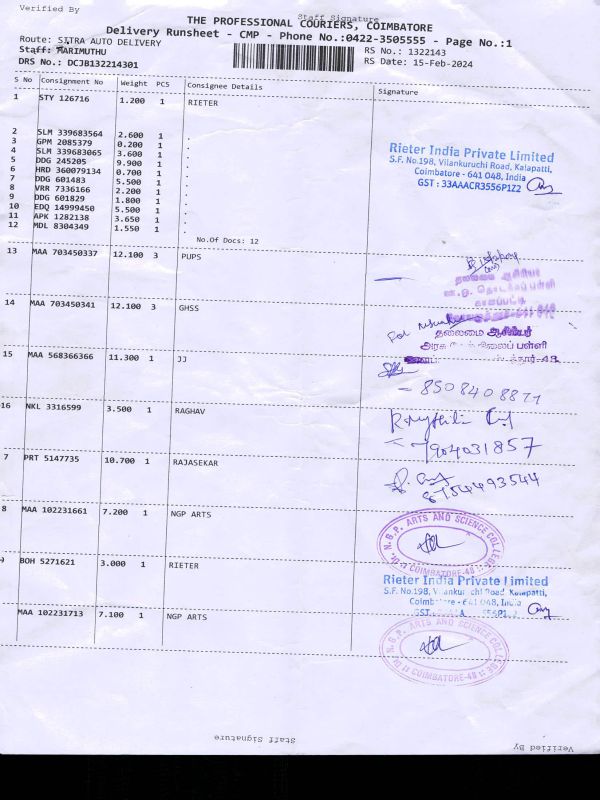 Verified By
Staff Signature
THE PROFESSIONAL COURIERS, COIMBATORE
Delivery Runsheet - CMP - Phone No.:0422-3505555 - Page No.:1
Route: SITRA AUTO DELIVERY
RS No.: 1322143
Staff: MARIMUTHU
RS Date: 15-Feb-2024
DRS No.: DCJB132214301
S No Consignment No Weight PCS Consignee Details Signature
1 STY 126716 1.200 1 RIETER
2 SLM 339683564 2.600 1 .
3 GPM 2085379 0.200 1 .
4 SLM 339683065 3.600 1 .
5 DDG 245205 9.900 1 .
6 HRD 360079134 0.700 1 .
7 DDG 601483 5.500 1 .
8 VRR 7336166 2.200 1 .
9 DDG 601829 1.800 1 .
10 EDQ 14999450 5.500 1 .
11 APK 1282138 3.650 1 .
12 MDL 8304349 1.550 1 .
No.Of Docs: 12
Rieter India Private Limited
S.F. No.198, Vilankuruchi Road, Kalapatti,
Coimbatore - 641 048, India
GST : 33AAACR3556P1Z2
13 MAA 703450337 12.100 3 PUPS
தலைமை ஆசிரியர்
14 MAA 703450341 12.100 3 GHSS
For
தலைமை ஆசிரியர்
அரசு பள்ளி
15 MAA 568366366 11.300 1 JJ
16 NKL 3316599 3.500 1 RAGHAV
7904031857
7 PRT 5147735 10.700 1 RAJASEKAR
8754493544
8 MAA 102231661 7.200 1 NGP ARTS
Dr. N.G.P. ARTS AND SCIENCE COLLEGE
COIMBATORE-48
9 BOH 5271621 3.000 1 RIETER
Rieter India Private Limited
S.F. No.198, Vilankuruchi Road, Kalapatti,
Coimbatore - 641 048, India
MAA 102231713 7.100 1 NGP ARTS
Dr. N.G.P. ARTS AND SCIENCE COLLEGE
COIMBATORE-48
Staff Signature
Verified By